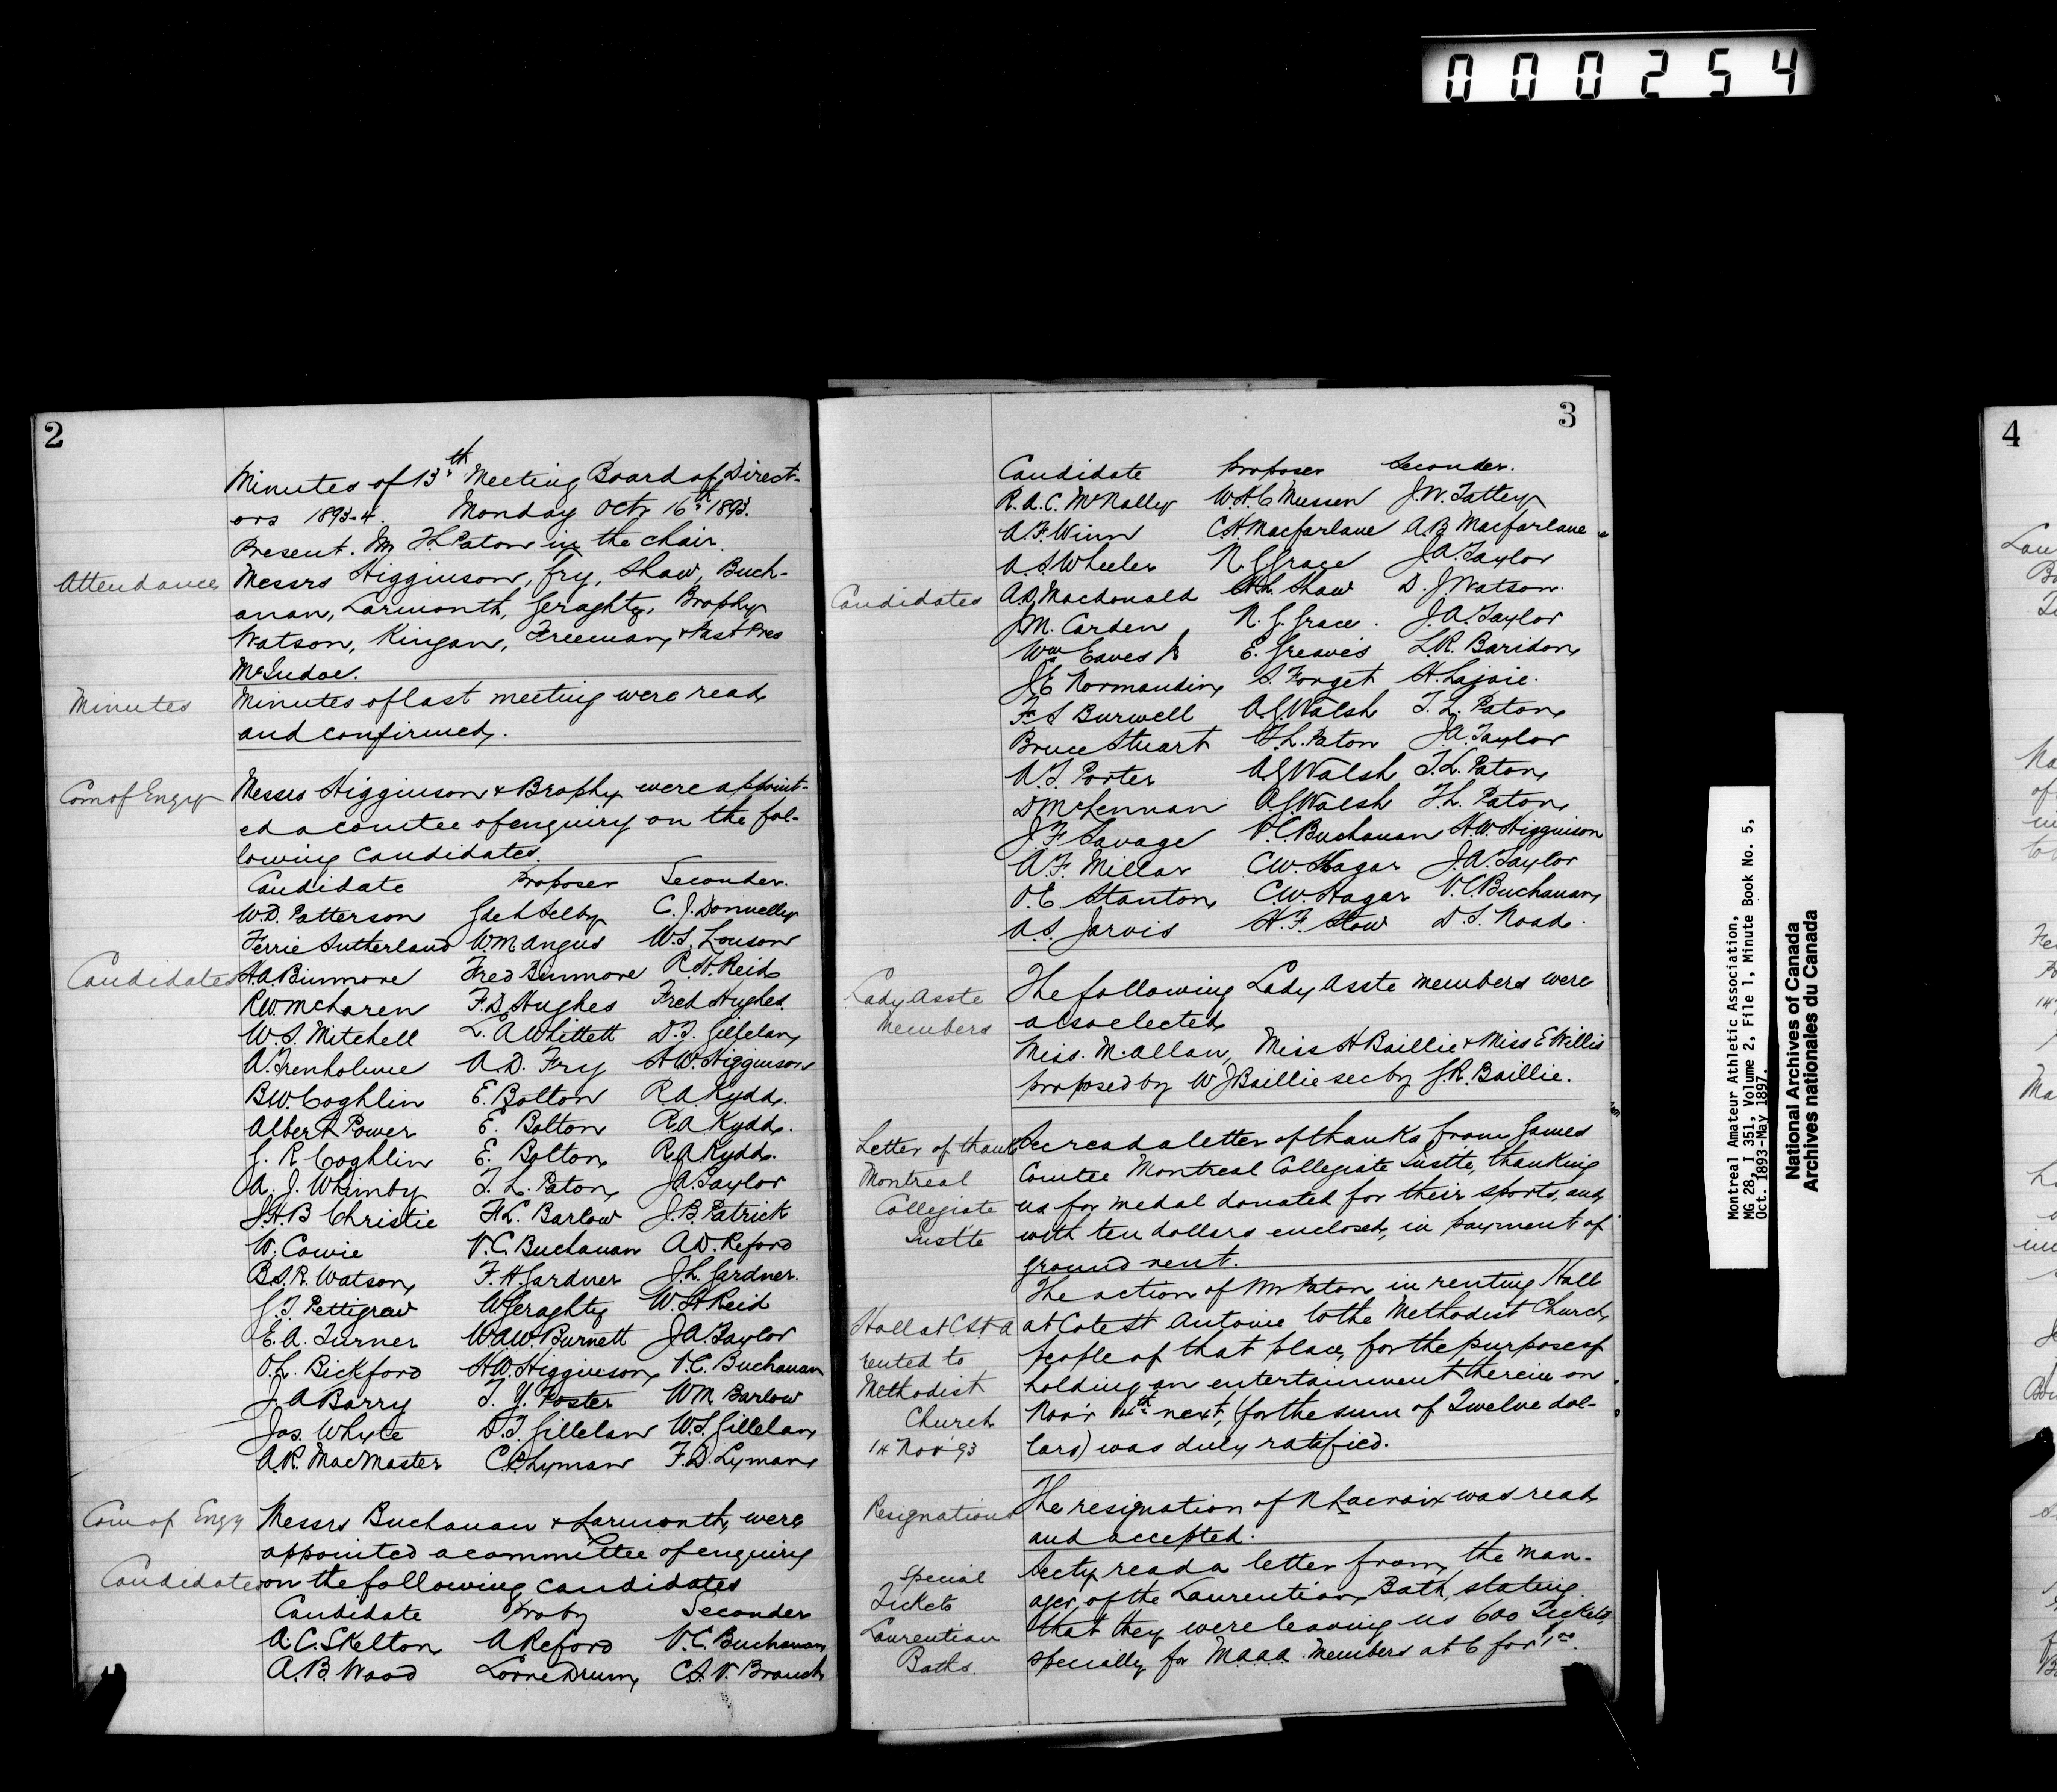 000254
2
Minutes of 13th Meeting Board of Direct-
ors 1893-4. Monday Octr 16th 1893.
Present. Mr T L Paton in the chair.
Attendance Messrs Higginson, Fry, Shaw, Buch-
anan, Larmonth, Geraghty, Brophy
Watson, Kingan, Freeman, & Past Pres
McIndoe.
Minutes Minutes of last meeting were read
and confirmed.
Com of Enqy Messrs Higginson & Brophy were appoint-
ed a comtee of enquiry on the fol-
lowing candidates.
Candidate Proposer Seconder.
W.D. Patterson G de L Selby C. J. Donnelly
Ferrie Sutherland WM Angus W.S. Louson
Candidates H.A. Binmore Fred Binmore R. H. Reid
R.W. McLaren F.D. Hughes Fred Hughes.
W.S. Mitchell L. A Whittett D.T. Gillelan
A. Trenholme A.D. Fry H.W. Higginson
B.W. Coghlin E. Bolton R.A. Kydd.
Albert Power E. Bolton R.A. Kydd.
J. R. Coghlin E. Bolton R.A. Kydd.
A. J. Whimby T. L. Paton JA. Taylor
J.H.B Christie F.L. Barlow J.B. Patrick
W. Cowie V.C. Buchanan A.D. Reford
B.S.R. Watson F.H. Gardner J.L. Gardner.
J.T. Pettigrew W Geraghty W. H Reid
E. A. Turner W.A.W. Burnett J.A. Taylor
O.L. Bickford H.W. Higginson V.C. Buchanan
J. A Barry T. Y. Foster W M Barlow
Jas. Whyte D.T. Gillelan W.S. Gillelan
A.R. MacMaster C.C. Lyman F.D. Lyman
Com of Enqy Messrs Buchanan & Larmonth, were
appointed a committee of enquiry
Candidates on the following candidates
Candidate Pro by Seconder
A.C. Skelton A Reford V.C. Buchanan
A.B. Wood Lorne Drum C.S.V. Branch
3
Candidate Proposer Seconder.
R.A.C. McNally W.H.C Mussen J.W. Tattley
A.F. Winn C.H. Macfarlane A.B Macfarlane
A.S. Wheeler N. G Grace J.A. Taylor
Candidates A.D. Macdonald A.L. Shaw D. J. Watson.
J.M. Carden N. G. Grace. J.A. Taylor
Wm Eaves Jr E. Greaves L.R. Baridon
J.E Normandin S. Forget H. Lajoie.
F S Burwell A.G. Walsh T. L. Paton
Bruce Stuart T.L. Paton J.A. Taylor
A.T. Porter A.G Walsh T.L. Paton
D McLennan A.G Walsh T.L. Paton
J. F Savage V.C. Buchanan H.W. Higginson
A.F. Millar C.W. Hagar J.A. Taylor
O.E. Stanton C.W. Hagar V.C. Buchanan
A.S. Jarvis H.F. Stow D.S. Noad.
Lady Asste The following Lady Asste members were
Members also elected
Miss. M. Allan, Miss H Baillie & Miss E Willis
proposed by W J Baillie sec by J.R. Baillie.
Letter of thanks Sec read a letter of thanks from Games
Montreal Comtee Montreal Collegiate Instte, thanking
Collegiate us for medal donated for their sports, and
Instte with ten dollars enclosed, in payment of
ground rent.
The action of Mr Paton in renting Hall
Hall at C.St.A at Cote St Antoine to the Methodist Church
rented to people of that place, for the purpose of
Methodist holding an entertainment therein on
Church Novr 14th next, (for the sum of Twelve dol-
14 Nov '93 lars) was duly ratified.
Resignations The resignation of N Lacroix was read
and accepted.
Special Secty read a letter from, the man-
Tickets ager, of the Laurentian Bath, stating
Laurentian that they were leaving us 600 Tickets
Baths. specially for M.A.A.A. Members at 6 for $1.00.
4
Montreal Amateur Athletic Association,
MG 28, I 351, Volume 2, File 1, Minute Book No. 5,
Oct. 1893-May 1897.
National Archives of Canada
Archives nationales du Canada